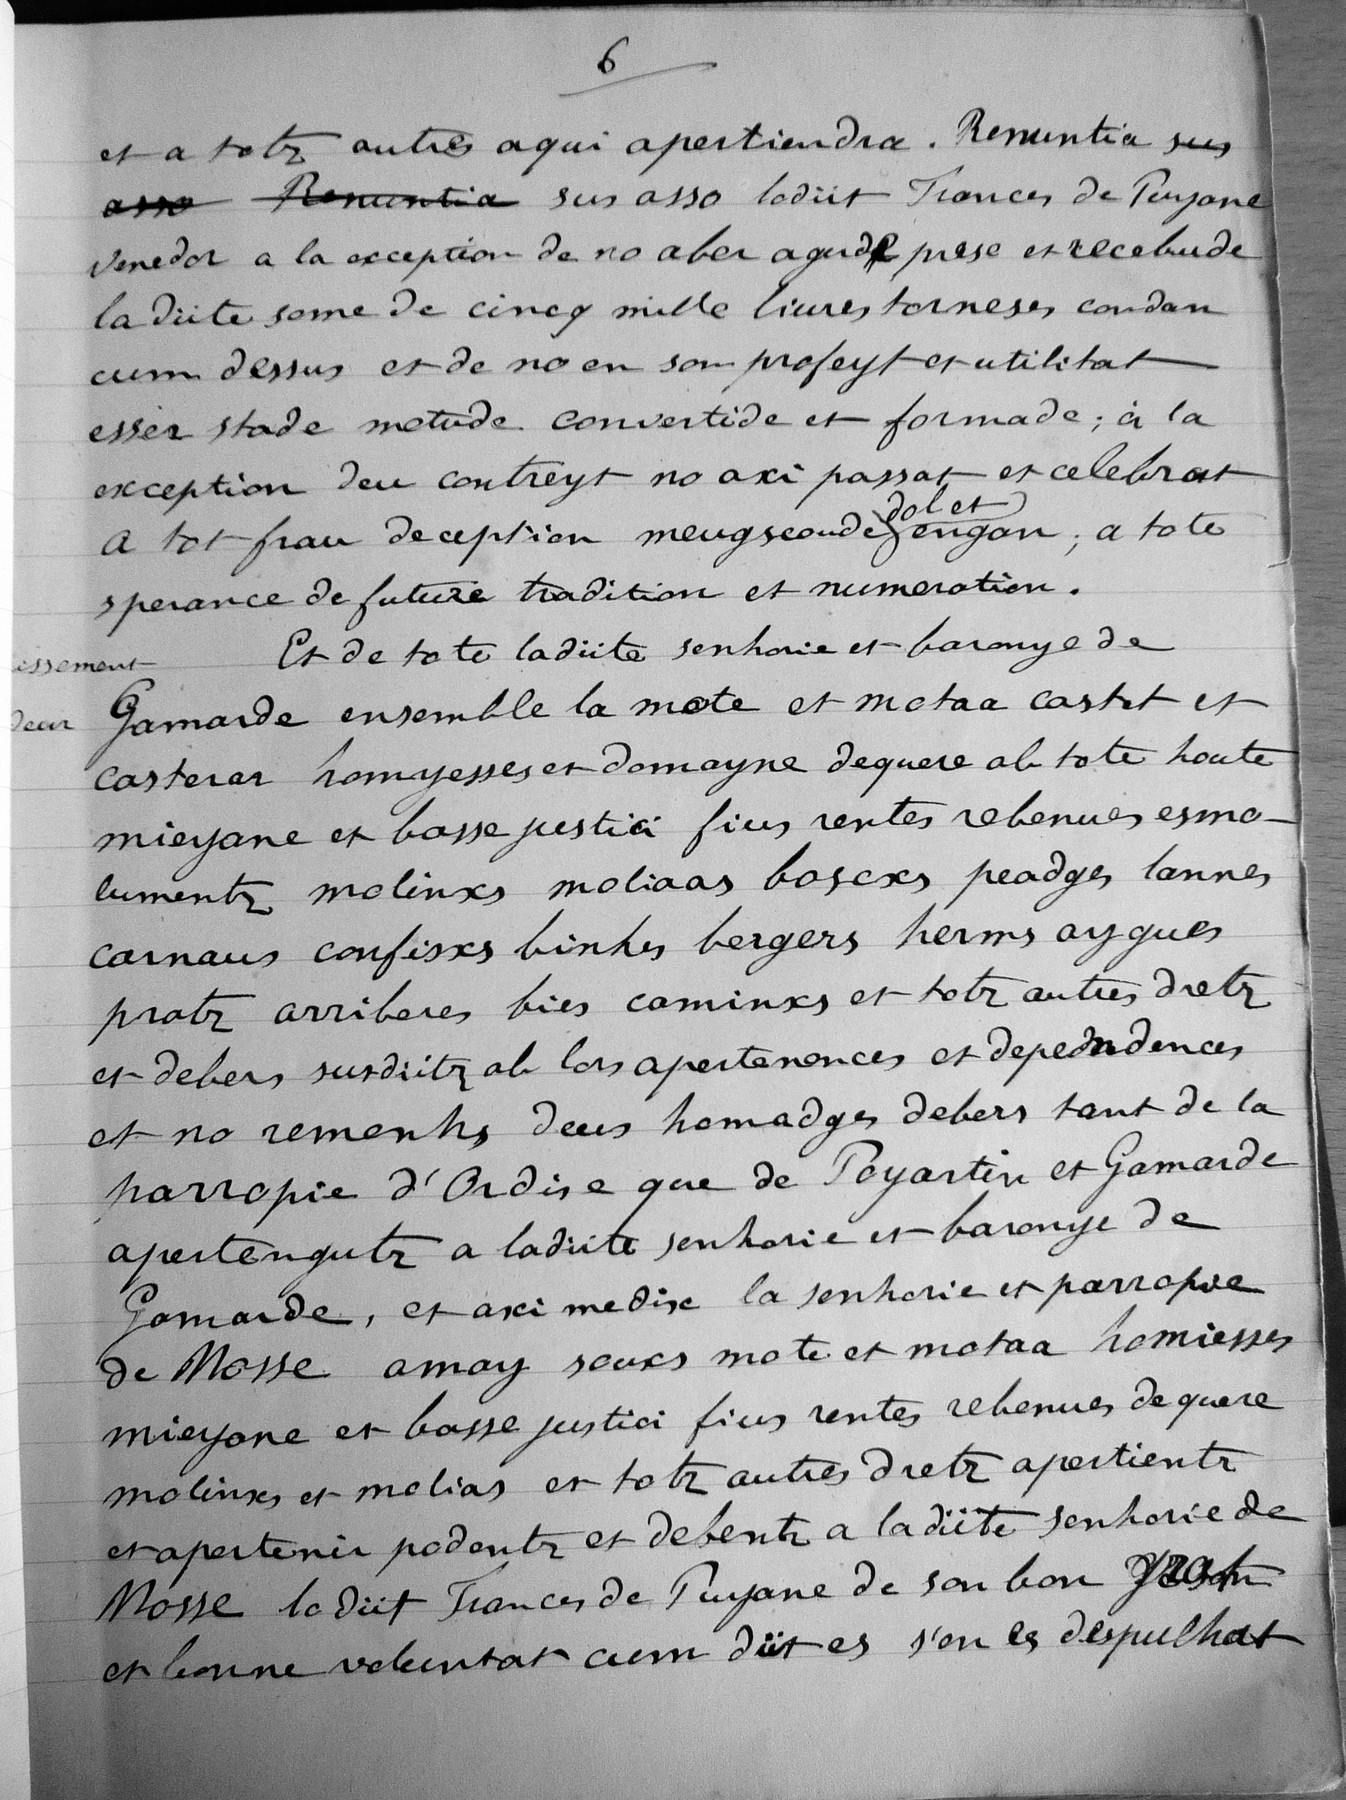 6
et a totz autres aqui apertiendra. Renuntia sus
asso Renuntia sus asso lodiit Frances de Puyane
venedor a la exception de no aber agude prese et recebude
la diite some de cincq mille liures torneses condan
cum dessus et de no en son profeyt et utilitat
esser stade metude convertide et formade; à la
exception deu contreyt no axi passat et celebrat
dol et
a tot frau deception meugscoude engan; a tote
sperance de future tradition et numeration.
Et de tote ladiite senhorie et baronye de
issement
Gamarde ensemble la mote et motaa castet et
deur
casterar homyesses et domayne dequere ab tote haute
mieyane et basse justici fius rentes rebenues esmo-
lumentz molinxs moliaas boscxs peadges lannes
carnaus confisxs binhes bergers herms aygues
pratz arriberes bies caminxs et totz autres dretz
et debers susdiitz ab lors apertenences et dependences
et no remenhs deus homadges debers tant de la
parropie d'Ordise que de Poyartin et Gamarde
apertengutz a ladiite senhorie et baronye de
Gamarde, et axi medix la senhorie et parropie
de Mosse amay souxs mote et motaa homiesses
mieyane et basse justici fius rentes rebenues dequere
molinxs et molias et totz autres dretz apertientz
et apertenir podentz et debentz a ladiite senhorie de
Mosse lodiit Frances de Puyane de son bon grat
et bonne voluntat cum diit es s'en es despulhat